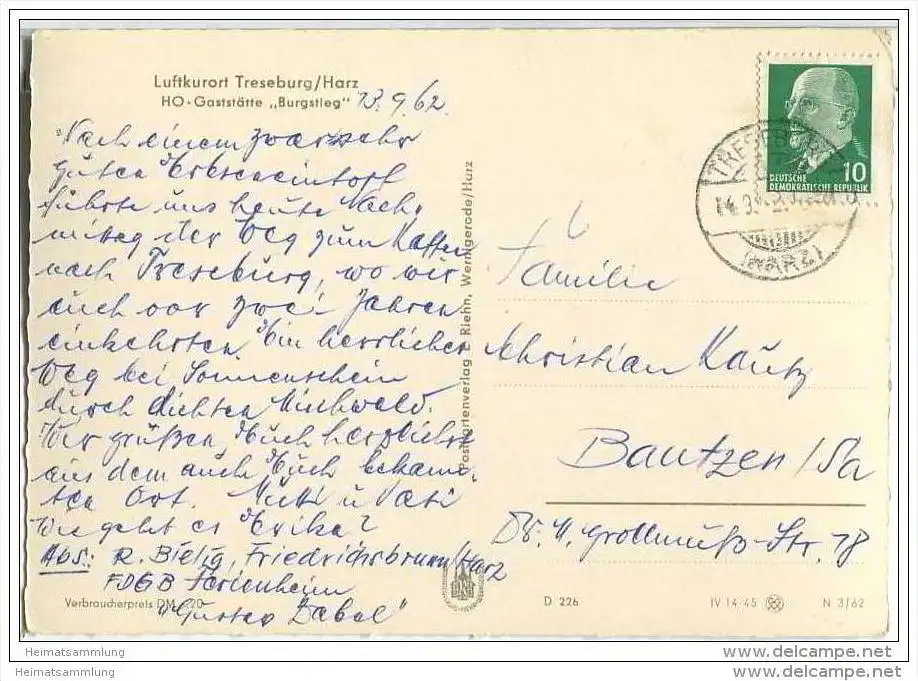 Luftkurort Treseburg/Harz
HO-Gaststätte „Burgstieg"
13.9.62
Nach einem zwar sehr
guten Erbseneintopf
führte uns heute Nach-
mittag der Weg zum Kaffee
nach Treseburg, wo wir
auch vor zwei Jahren
einkehrten. Ein herrlicher
Weg bei Sonnenschein
durch dichten Mischwald.
Wir grüßen Euch herzlichst
aus dem auch Euch bekann-
ten Ort. Mutti u. Vati
Wie geht es Erika?
Abs.: R. Bielig, Friedrichsbrunn/Harz
FDGB Ferienheim
"Gustav Dabel"
Verbraucherpreis DM 20
Postkartenverlag Riehn, Wernigerode/Harz
DEUTSCHE 10
DEMOKRATISCHE REPUBLIK
TRESEBURG
(HARZ)
Familie
Christian Kautz
Bautzen/Sa
Dr. Str. 18
D 226 IV 14 45 N 3/62
Heimatsammlung www.delcampe.net
Heimatsammlung www.delcampe.net